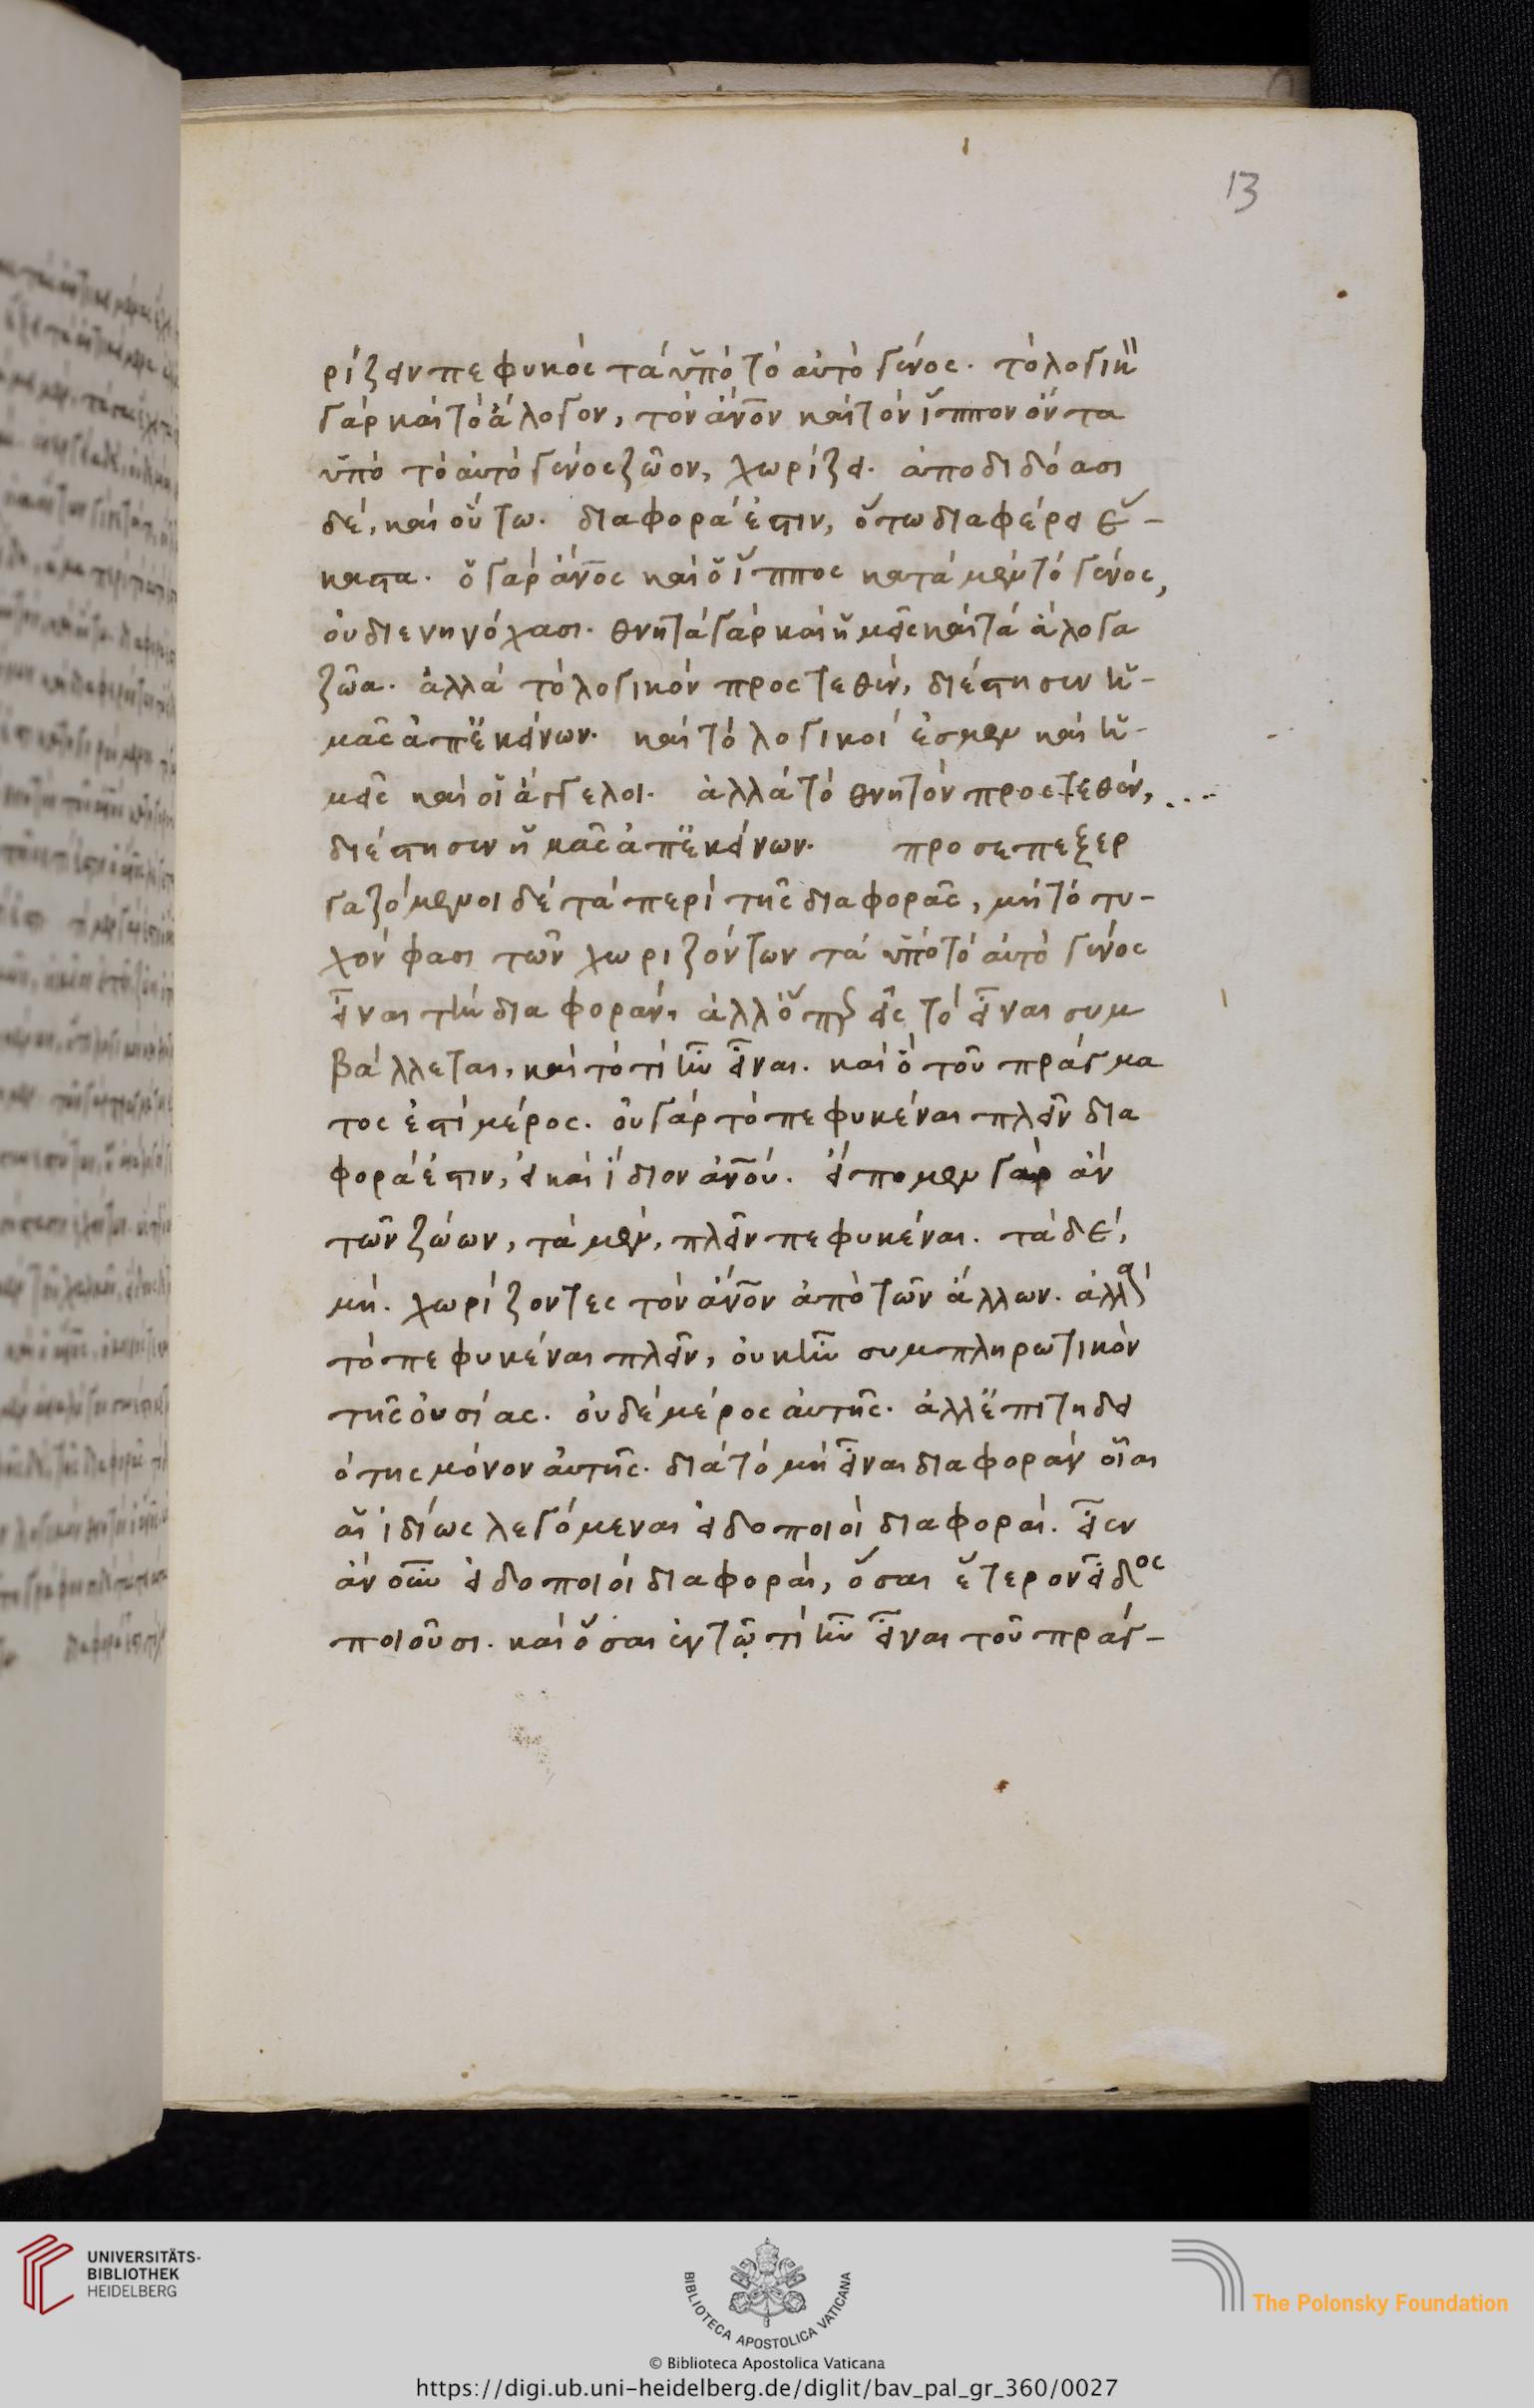 13
ρίζειν πεφυκὸς τὰ ὑπὸ τὸ αὐτὸ γένος. τὸ λογικὸν
γὰρ καὶ τὸ ἄλογον, τὸν ἄνον καὶ τὸν ἵππον ὄντα
ὑπὸ τὸ αὐτὸ γένος ζῶον, χωρίζει. ἀποδιδόασι
δέ, καὶ οὕτω. διαφορά ἐστιν, ὅτω διαφέρει ἕ-
καστα. ὁ γὰρ ἄνος καὶ ὁ ἵππος κατὰ μὲν τὸ γένος,
οὐ διενηνόχασι. θνητὰ γὰρ καὶ ἡμεῖς καὶ τὰ ἄλογα
ζῶα. ἀλλὰ τὸ λογικὸν προστεθὲν, διέστησεν ἡ-
μᾶς ἀπ' ἐκείνων. καὶ τὸ λογικοί ἐσμεν καὶ ἡ-
μεῖς καὶ οἱ ἄγγελοι. ἀλλὰ τὸ θνητὸν προστεθὲν,
διέστησεν ἡμᾶς ἀπ' ἐκείνων. προσεπεξερ
γαζόμενοι δὲ τὰ περὶ τῆς διαφορᾶς, μὴ τὸ τυ-
χόν φασι τῶν χωριζόντων τὰ ὑπὸ τὸ αὐτὸ γένος
εἶναι τὴν διαφοράν, ἀλλ' ὅπερ εἰς τὸ εἶναι συμ
βάλλεται, καὶ τὸ τί ἦν εἶναι. καὶ ὃ τοῦ πράγμα
τος ἐστὶ μέρος. οὐ γὰρ τὸ πεφυκέναι πλεῖν δια
φορά ἐστιν, εἰ καὶ ἴδιον ἀνου. εἴποιμεν γὰρ ἂν
τῶν ζώων, τὰ μὲν, πλεῖν πεφυκέναι. τὰ δὲ,
μή. χωρίζοντες τὸν ἄνον ἀπὸ τῶν ἄλλων. ἀλλὰ
τὸ πεφυκέναι πλεῖν, οὐκ ἦν συμπληρωτικὸν
τῆς οὐσίας. οὐδὲ μέρος αὐτῆς. ἀλλ' ἐπιτηδει
ότης μόνον αὐτῆς. διὰ τὸ μὴ εἶναι διαφορὰν οἷαι
αἱ ἰδίως λεγόμεναι εἰδοποιοὶ διαφοραί. εἶεν
ἂν οὖν εἰδοποιοὶ διαφοραί, ὅσαι ἕτερον εἶδος
ποιοῦσι. καὶ ὅσαι ἐν τῷ τί ἦν εἶναι τοῦ πράγ-
UNIVERSITÄTS-
BIBLIOTHEK
HEIDELBERG
BIBLIOTECA APOSTOLICA VATICANA
The Polonsky Foundation
© Biblioteca Apostolica Vaticana
https://digi.ub.uni-heidelberg.de/diglit/bav_pal_gr_360/0027